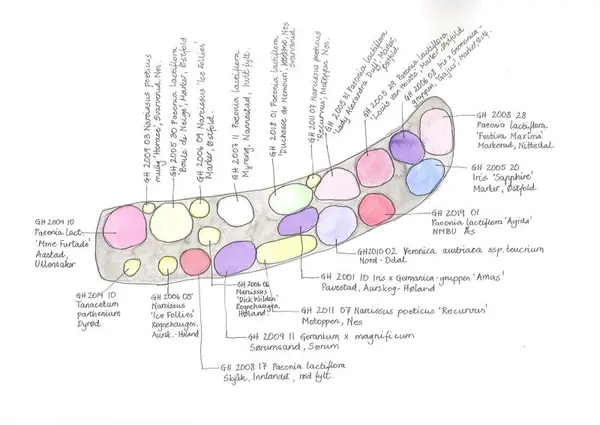 GH 2009 03 Narcissus poeticus
mulig 'Horace', Svarverud, Nes
GH 2005 30 Paeonia lactiflora
'Boule de Neige', Marker, Østfold
GH 2006 09 Narcissus 'Ice Follies'
Marker, Østfold.
GH 2007 11 Paeonia lactiflora
Myreng, Nannestad, hvit fylt.
GH 2018 01 Paeonia lactiflora
'Duchesse de Nemours', Nes
Svarverud
GH 2011 07 Narcissus poeticus
'Recurvus', Motoppen, Nes.
GH 2005 31 Paeonia lactiflora
'Lady Alexandra Duff', Marker,
Østfold
GH 2005 29 Paeonia lactiflora
'Louis van Houtte', Marker, Østfold
GH 2006 03 Iris x Germanica-
gruppen, Marker,
GH 2008 28
Paeonia lactiflora
'Festiva Maxima'
Markerud, Nittedal
GH 2005 20
Iris 'Sapphire'
Marker, Østfold
GH 2019 01
Paeonia lactiflora 'Agida'
NMBU Ås
GH 2010 02 Veronica austriaca ssp. teucrium
Nord-Odal
GH 2001 10 Iris x Germanica-gruppen 'Amas'
Pavestad, Aurskog-Høland
GH 2011 07 Narcissus poeticus 'Recurvus'
Motoppen, Nes
GH 2009 11 Geranium x magnificum
Sørumsand, Sørum
GH 2008 17 Paeonia lactiflora
Skjåk, Innlandet, rød fylt.
GH 2006 06
Narcissus
'Dick Wilden'
Kognehaugen,
Høland
GH 2006 05
Narcissus
'Ice Follies'
Kognehaugen,
Aursk.-Høland
GH 2014 10
Tanacetum
parthenium
Dyrød
GH 2004 10
Paeonia Lact.
'Mme Furtado'
Aastad,
Ullensaker